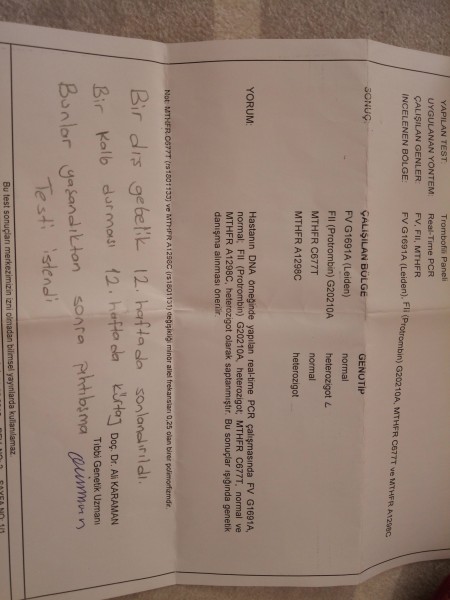 YAPILAN TEST: Trombofili Paneli
UYGULANAN YÖNTEM: Real-Time PCR
ÇALIŞILAN GENLER: FV, FII, MTHFR
İNCELENEN BÖLGE: FV G1691A (Leiden), FII (Protrombin) G20210A, MTHFR C677T ve MTHFR A1298C
SONUÇ:
ÇALIŞILAN BÖLGE GENOTİP
FV G1691A (Leiden) normal
FII (Protrombin) G20210A heterozigot
MTHFR C677T normal
MTHFR A1298C heterozigot
YORUM: Hastanın DNA örneğinde yapılan real-time PCR çalışmasında FV G1691A,
normal; FII (Protrombin) G20210A, heterozigot; MTHFR C677T, normal ve
MTHFR A1298C, heterozigot olarak saptanmıştır. Bu sonuçlar ışığında genetik
danışma alınması önerilir.
Not: MTHFR C677T (rs1801133) ve MTHFR A1298C (rs1801131) değişikliği minör allel frekansları 0,25 olan birer polimorfizmdir.
Bir dış gebelik 12. haftada sonlandırıldı.
Bir kalb durması 12. haftada kürtaj
Doç. Dr. Ali KARAMAN
Tıbbi Genetik Uzmanı
Bunlar yaşandıktan sonra pıhtılaşma
Testi istendi
Bu test sonuçları merkezimizin izni olmadan bilimsel yayınlarda kullanılamaz.